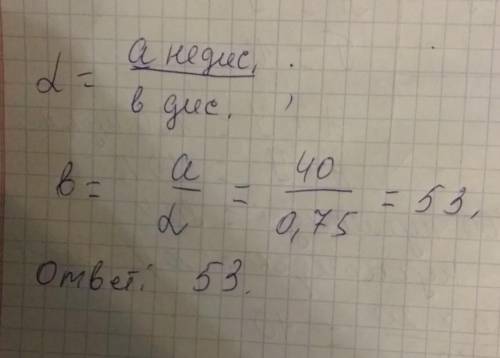 α = a недис. / в дис. ;
в = a / α = 40 / 0,75 = 53,
Ответ: 53.